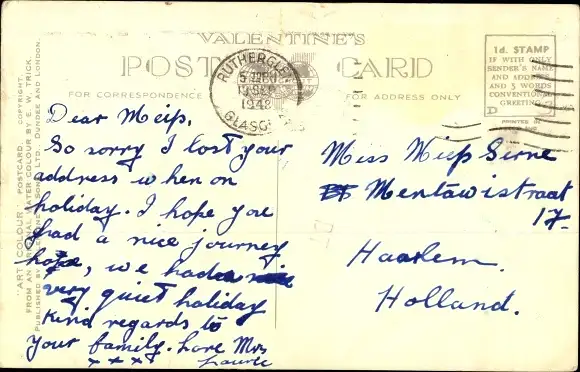 VALENTINE'S
POST CARD
FOR CORRESPONDENCE
FOR ADDRESS ONLY
1d. STAMP
IF WITH ONLY
SENDER'S NAME
AND ADDRESS
AND 5 WORDS
CONVENTIONAL
GREETING
D
PRINTED
RUTHERGLEN
1948
GLASGOW
"ART COLOUR" POSTCARD. COPYRIGHT.
FROM AN ORIGINAL WATER COLOUR BY E. W. TRICK.
PUBLISHED BY VALENTINE & SONS, LTD. DUNDEE AND LONDON.
Dear Meip,
So sorry I lost your
address when on
holiday. I hope you
had a nice journey
home, we had a
very quiet holiday
Kind regards to
your family. Love Mrs
x x x x Lawrie
Miss Miep Serne
Mentawistraat
17.
Haarlem.
Holland.